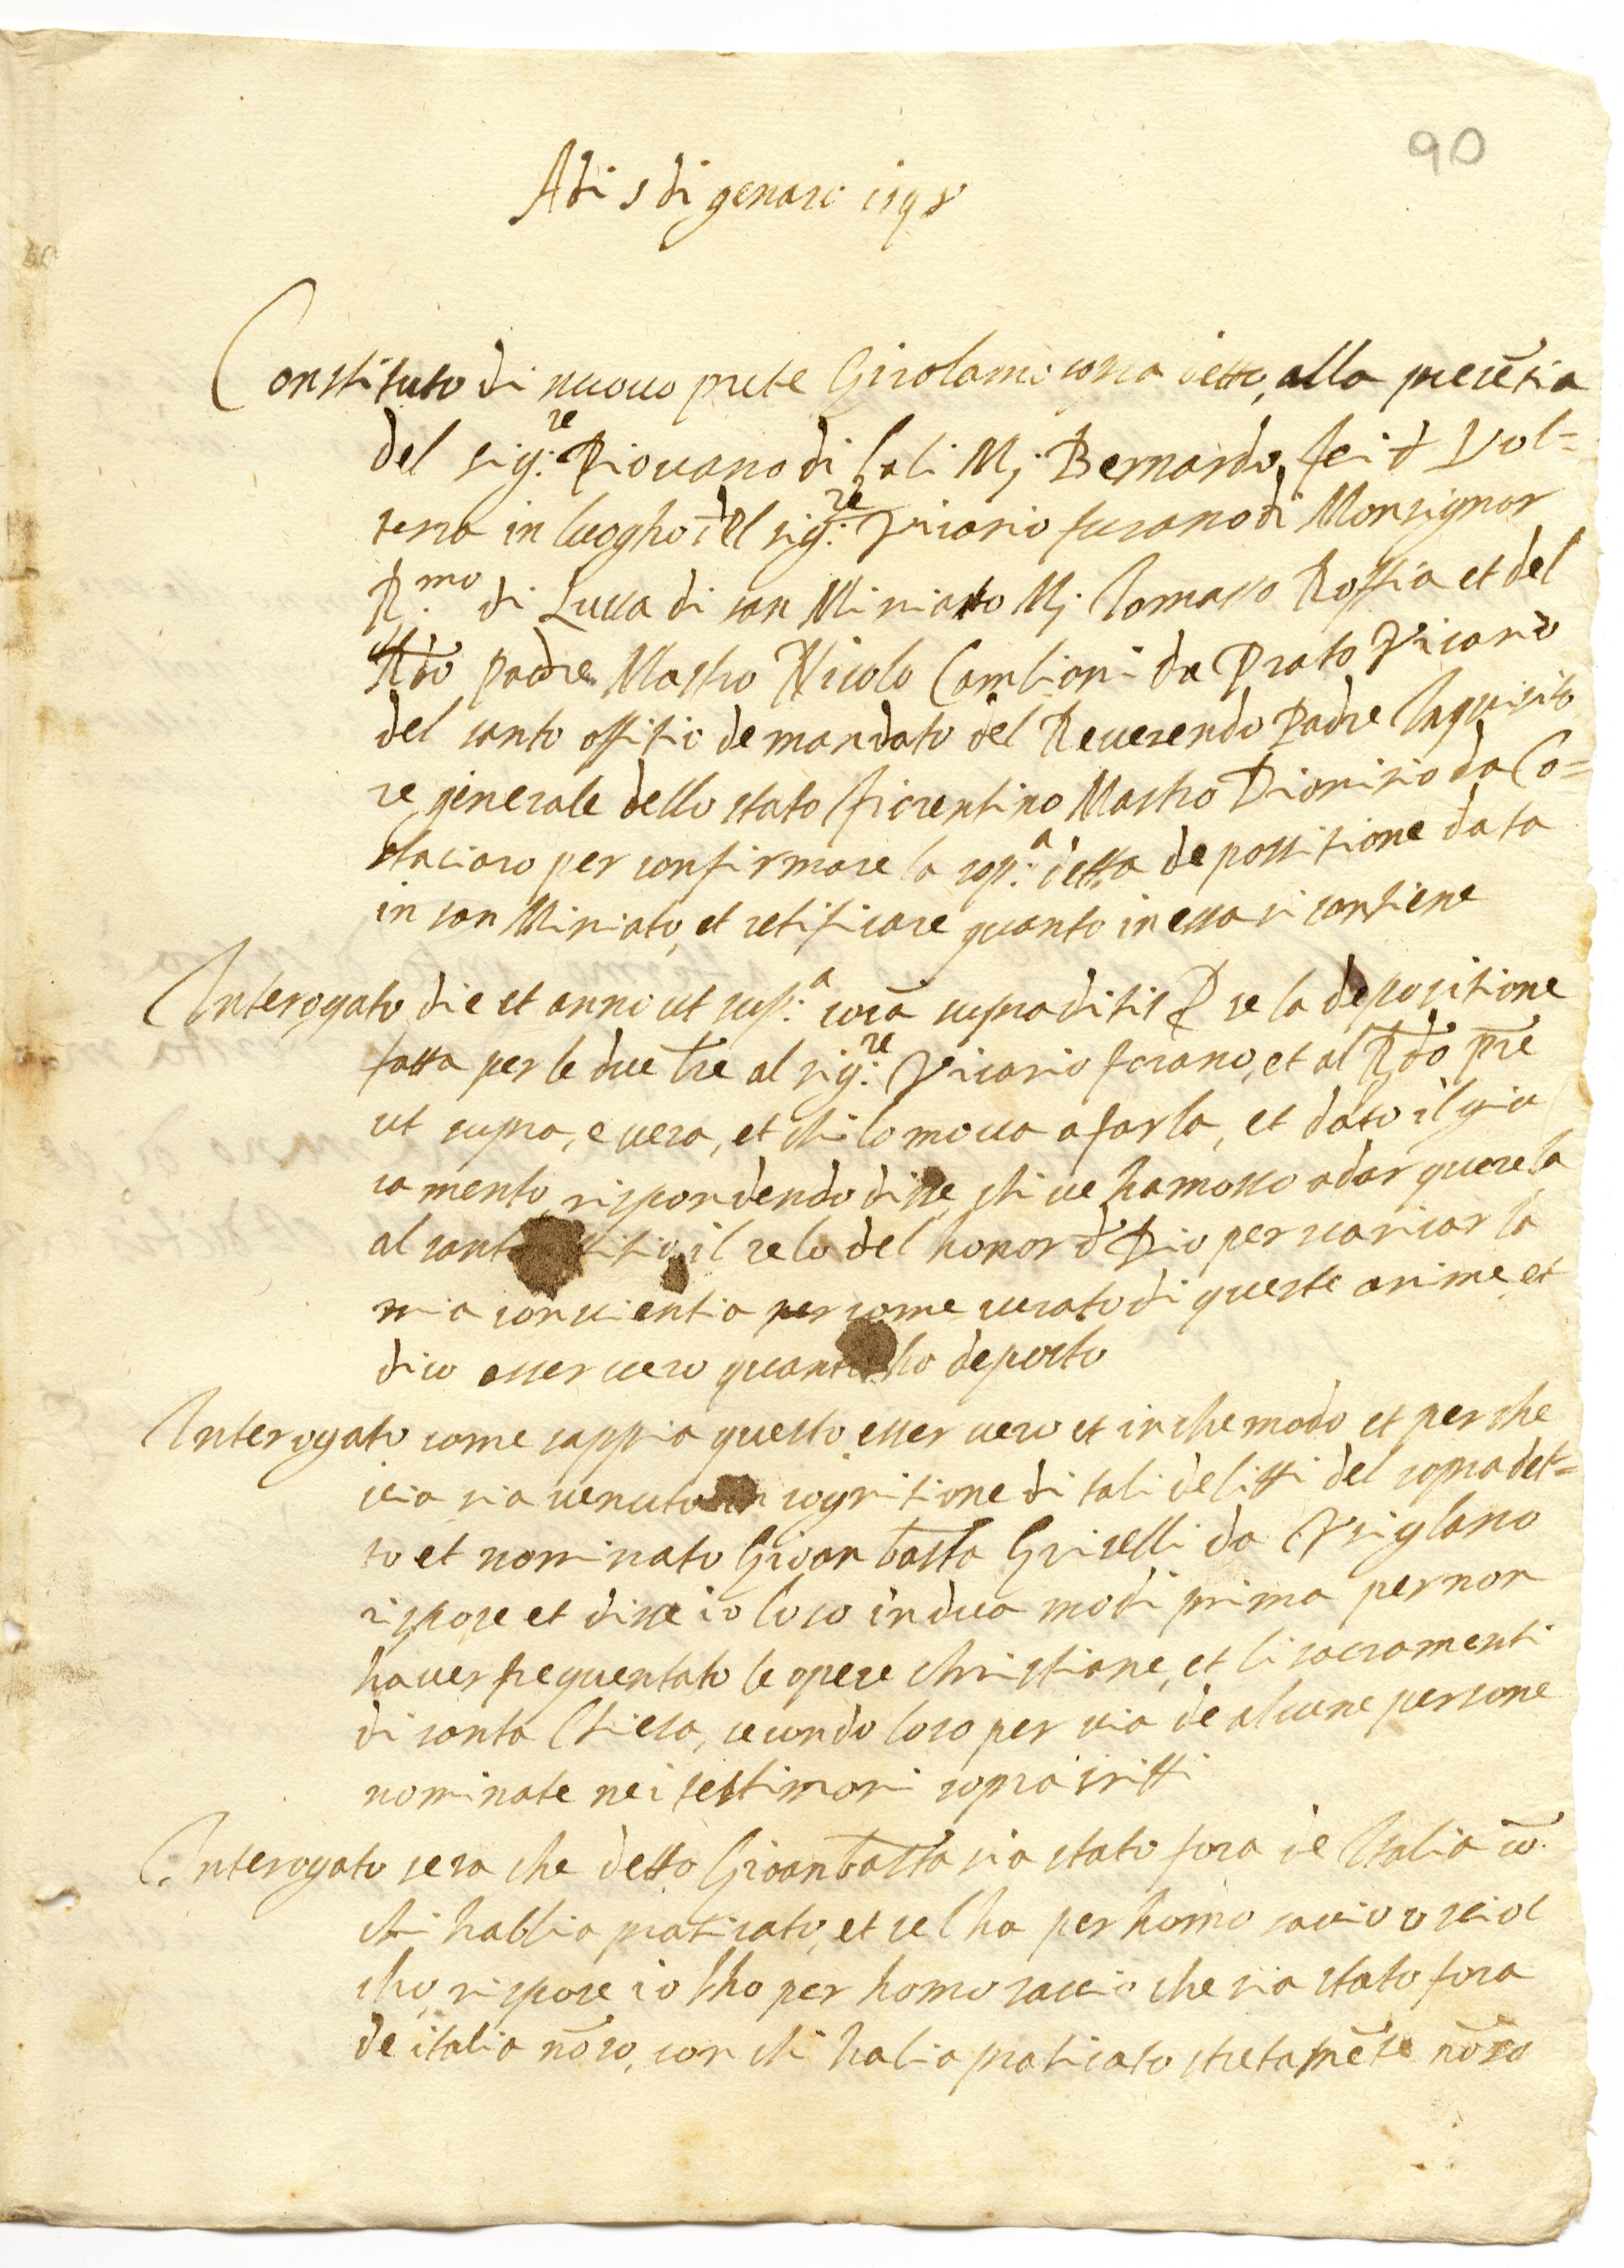 90
Adi 5 di genaro 1598
Constituto di nuovo prete Girolamo sopra detto, alla presẽtia
del sig.re Piovano di Celi Mj. Bernardo, fei d Vol=
terra in luogho del sig.re Vicario furano di Monsignor
R.mo di Lucca di san Miniatto Mj. Tomasso Roffia et del
Rdo padre Mastro Nicolo Cambioni da Prato Vicario
del santo offitio de mandato del Reverendo Padre Inquisito
re generale dello stato fiorentino Mastro Dionisio da Co=
stacioro per confirmare la sop.a detta depossitione data
in san Miniato, et retificare quanto in essa si contiene
Interogato die et anno ut sup.a corã supraditis P se la depositione
fatta per le due lre al sig.re Vicario forano, et al Rdo pre
ut supra, e vera, et chi lo mova a farla, et dato il giu
ramento, rispondendo disse, chi ve ha mosso a dar querela
al santo offitio, il zelo del honor d Dio per scaricar la
mia conscientia per come curato di queste anime, et
dico esser vero quanto ho deposto
Interogato come sappia questo esser vero et in che modo et per che
via sia venuto in cognitione di tali delitti del sopradet=
to et nominato Gioanbatta Griselli da Vriglano
rispose et disse io lo so in dua modi prima per non
haver frequentato le opere christiane, et li sacramenti
di santa Chiesa, secundo lo so per via de alcune persone
nominate nei testimoni sopra scritti
Interogato se sa che detto Gioanbatta sia stato fora de Italia cõ
chi habbia praticato, et se l ha per homo savio o scioc
cho, rispose io l ho per homo savio che sia stato fora
de italia nõ so, con chi habia praticato stretamẽte nõ so